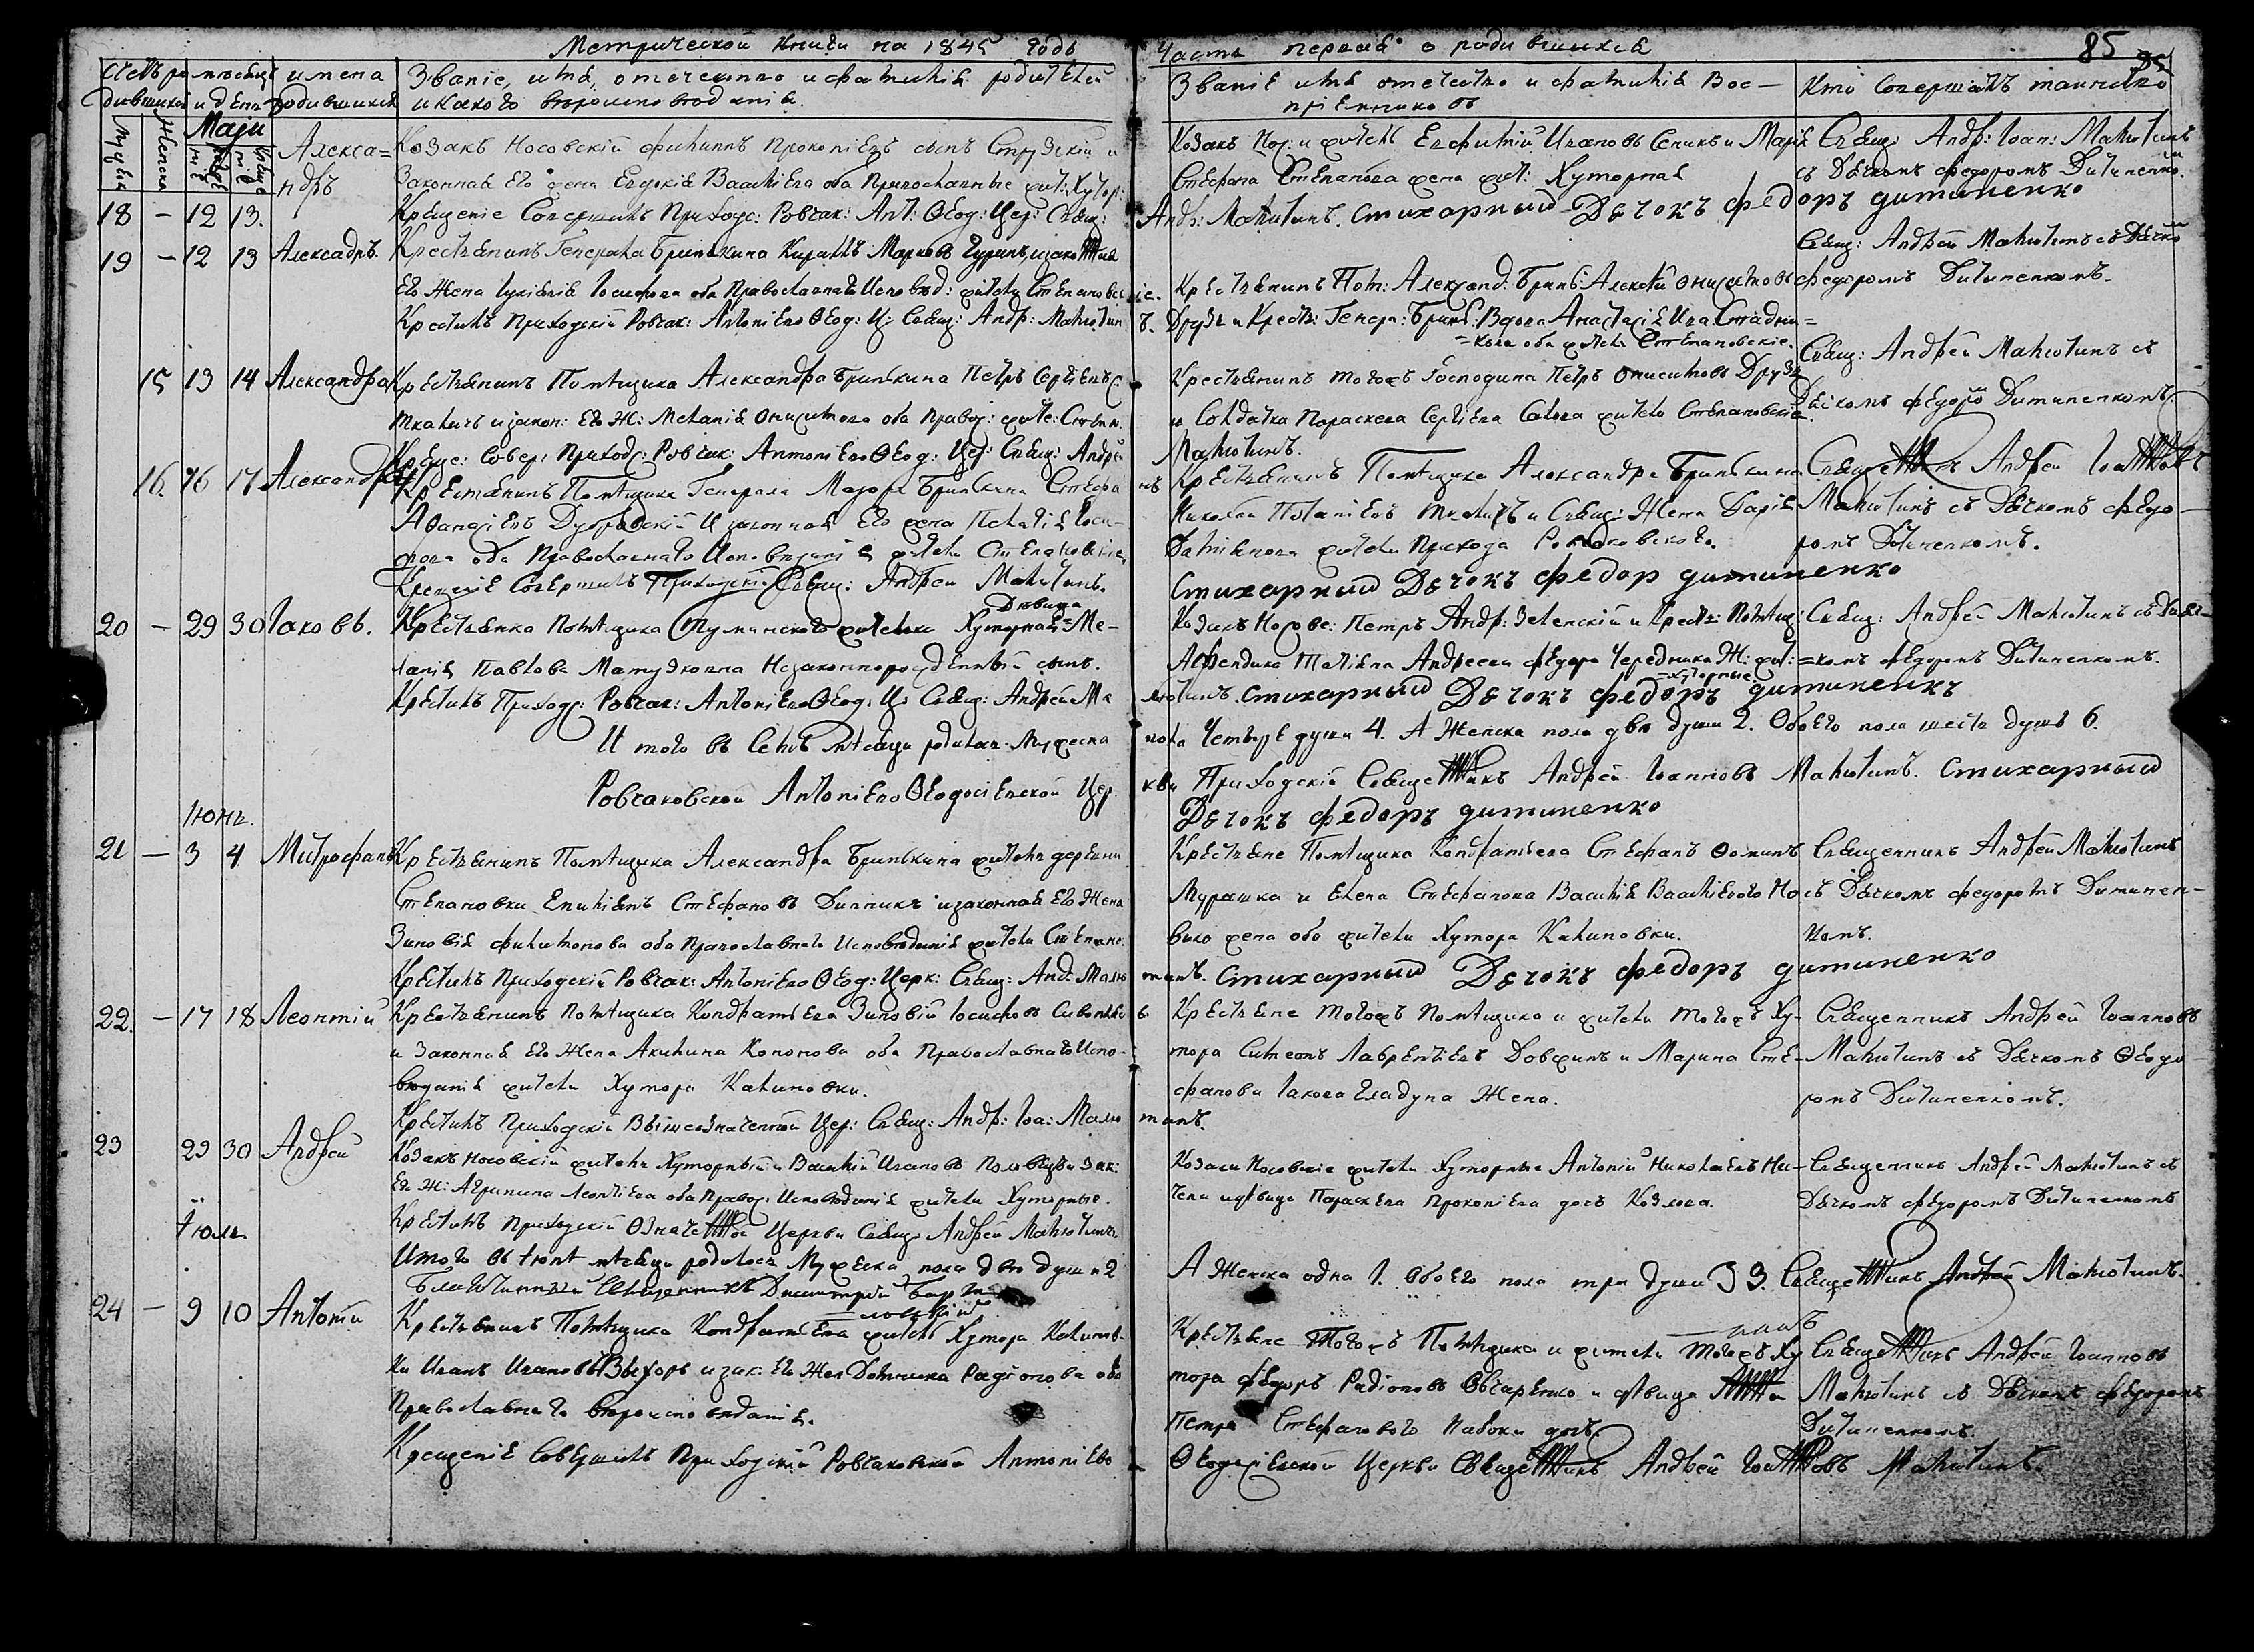 Метрической Книги на 1845 годъ
Часть первая о родившихся
85
Счетъ родившихся
мѣсяцъ и день
имена родившихся
Званіе, имя, отечество и фамилія родителей
и какого вѣроисповѣданія.
Званіе имя отечество и фамилія Вос—
пріемниковъ
Кто совершалъ таинство
Мужеск
Женска
Маія
Алекса=
ндръ
Козакъ Носовскій Филиппъ Прокопіевъ сынъ
Законная его жена Евдокія Василіева оба Православные жит: Хутор:
18 — 12 13.
Крещеніе Совершилъ Приходс: Ровчак: Ант: Ѳеод: Цер: Свящ:
Козакъ Нос: и житель Евфимій Ивановъ и Марія
Стефана Степанова жена жит: Хуторная
Андр: Малютинъ. Стихарный Дячокъ федоръ дитиненко
Свящ: Андр: Іоан: Малютинъ
съ Дячкомъ Федоромъ Дитиненко.
19 — 12 13 Александръ.
Крестьянинъ Генерала Бринкина Кириллъ Марковъ
Его Жена Іосифова оба Православнаго Исповѣд: жители Степановскіе.
Крестилъ Приходскій Ровчак: Антоніево Ѳеод: Ц: Свящ: Андр: Малютинъ.
Крестьянинъ Пом: Александ: Бринк: Алексѣй Онисимовъ
Друзь и Крест: Генера: Бринк: Вдова Анастасія
оба жители Степановскіе.
Свящ: Андрей Малютинъ съ Дячко
федоромъ Дитиненкомъ.
15 13 14 Александра
Крестьянинъ Помѣщика Александра Бринкина Петръ Сергіевъ
Ткаличъ и закон: Его Ж: Меланія Онисимова оба Правос: жите: Степан.
Креще: Совер: Приход: Ровчак: Антоніево Ѳеод: Цер: Свящ: Андрей
Крестьянинъ тогожъ Господина Петръ Онисимовъ Друзь
и Солдатка Параскева Сергіева жители Степановскіе.
Малютинъ.
Свящ: Андрей Малютинъ съ
Дячкомъ Федоро Дитиненкомъ.
16. 16 17 Александра
Крестьянинъ Помѣщика Генерала Маіора Бринкина Стефанъ
Аѳанасіевъ Дубровскій и законная его жена Пелагія Іоси-
фова оба Православнаго Исповѣданія жители Степановскіе.
Крещеніе Совершилъ Приходскій Свящ: Андрей Малютинъ.
Крестьянинъ Помѣщика Александра Бринкина
Николай Потапіевъ и Свящ: Жена Дарія
жители Прихода Ровчаковскаго.
Стихарный Дячокъ федор дитиненко
Священникъ Андрей Іоанновъ
Малютинъ съ Дячкомъ Федо-
ромъ Дитиненкомъ.
20 — 29 30 Іаковъ.
Крестьянка Помѣщика жителька Хуторная Дѣвица Ме-
ланія Павлова незаконнорожденный сынъ.
Крестилъ Приходс: Ровчак: Антоніево Ѳеод: Ц: Свящ: Андрей Ма
Козакъ Носове: Петръ Андр: Зеленскій и Крест: Помѣщ:
Татіяна Андреева Федора Чередника Ж: жит:
=хуторные.
лютинъ. Стихарный Дячокъ федоръ дитиненкъ
Свящ: Андрей Малютинъ съ Дяч-
=комъ Федоромъ Дитиненкомъ.
И того въ семъ мѣсяцѣ родилось Мужеска
пола Четыре души 4. А Женска пола двѣ души 2. Обоего пола шесть душъ 6.
Ровчаковской Антоніево Ѳеодосіевской Цер
кви Приходскій Священникъ Андрей Іоанновъ Малютинъ. Стихарный
Дячокъ федоръ дитиненко
Іюнь.
21 — 3 4 Митрофанъ
Крестьянинъ Помѣщика Александра Бринкина житель деревни
Степановки Стефановъ и законная Его Жена
Зиновія Филимонова оба Православнаго Исповѣданія жители Степано:
Крестилъ Приходскій Ровчак: Антоніево Ѳеод: Церк: Свящ: Анд: Малю
Крестьяне Помѣщика Кондратьева Стефанъ Ѳоминъ
Мурашка и Елена Стефанова Василія Василіевого Но
вико жена оба жители Хутора Калиновки.
тинъ. Стихарный Дячокъ федоръ дитиненко
Священникъ Андрей Малютинъ
съ Дячкомъ Федоромъ Дитинен-
комъ.
22. — 17 18 Леонтій
Крестьянинъ Помѣщика Кондратьева Зиновій Іосифовъ
и Законная Его Жена Акилина Кононова оба Православнаго Испо-
вѣданія жители Хутора Калиновки.
Крестилъ Приходскій Вышеозначенной Цер: Свящ: Андр: Іоа: Малю
Крестьяне тогожъ Помѣщика и жители тогожъ Ху-
тора Симеонъ Лаврентіевъ Довжинъ и Марина Сте-
фанова Іакова Гладуна Жена.
тинъ.
Священникъ Андрей Іоанновъ
Малютинъ съ Дячкомъ Ѳеодо
ромъ Дитиненкомъ.
23 29 30 Андрей
Козакъ Носовскій житель Хуторный Василій Ивановъ и Зак:
Его Ж: Агрипина Леонтіева оба Правос: Исповѣданія жители Хуторные.
Крестилъ Приходскій Означенной Церкви Свящ: Андрей Малютинъ
Козаки Носовскіе жители Хуторные Антоній Николаевъ
и дѣвица Параскева Прокопіева дочь Козлова.
Священникъ Андрей Малютинъ съ
Дячкомъ Федоромъ Дитиненкомъ
Іюль.
Итого въ Іюнѣ мѣсяцѣ родилось Мужеска пола двѣ души 2
А Женска одна 1. Обоего пола три души 3 3. Священникъ Андрей Малютинъ.
Благочинный Священникъ Димитрій
24 — 9 10 Антоній
Крестьянинъ Помѣщика Кондратьева житель Хутора Калинов-
ки Иванъ Ивановъ и зак: Его Жен Домникія Радіонова оба
Православнаго вѣроисповѣданія.
Крещеніе Совершилъ Приходскій Ровчаковской Антоніево
Крестьяне Тогожъ Помѣщика и жители тогожъ Ху
тора Федоръ Радіоновъ Овчаренко и дѣвица Анна
Петра Стефанового дочь.
Ѳеодосіевской Церкви Священникъ Андрей Іоанновъ Малютинъ.
Священникъ Андрей Іоанновъ
Малютинъ съ Дячкомъ Федоромъ
Дитиненкомъ.